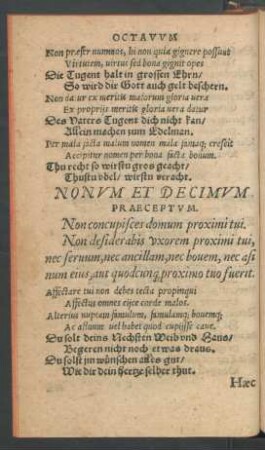 OCTAVVM
Non præfer nummos, hi non quia gignere possunt
Virtutem, virtus sed bona gignit opes
Die Tugent halt in grossen Ehrn/
So wird dir Gott auch gelt beschern.
Non datur ex meritis maiorum gloria vera
Ex proprijs meritis gloria vera datur
Des Vaters Tugent dich nicht kan/
Allein machen zum Edelman.
Per mala facta malum nomen mala famaq; crescit
Accipitur nomen per bona facta bonum.
Thu recht so wirstu gros geacht/
Thustu vbel/ wirstu veracht.
NONVM ET DECIMVM
PRAECEPTVM.
Non concupisces domum proximi tui.
Non desiderabis vxorem proximi tui,
nec seruum, nec ancillam, nec bouem, nec asi
num eius, aut quodcunq; proximo tuo fuerit.
Affectare tui non debes tecta propinqui
Affectus omnes eijce corde malos.
Alterius nuptam famulum, famulamq; bouemq;
Ac asinum vel habet quod cupijsse caue.
Du solt deins Nechsten Weib vnd Haus/
Begeren nicht noch etwas draus.
Du solst jm wünschen alles gut/
Wie dir dein hertze selber thut.
Hæc